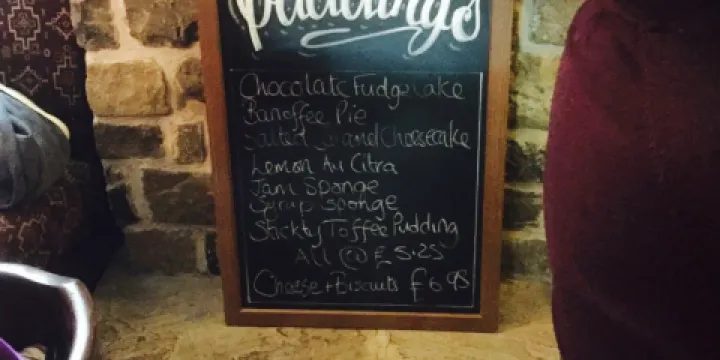 Puddings
Chocolate Fudge cake
Banoffee Pie
Salted Cheesecake
Lemon Au Citra
Jam Sponge
Syrup Sponge
Stickty Toffee Pudding
All @ £5.25
Cheese + Biscuits £6.95